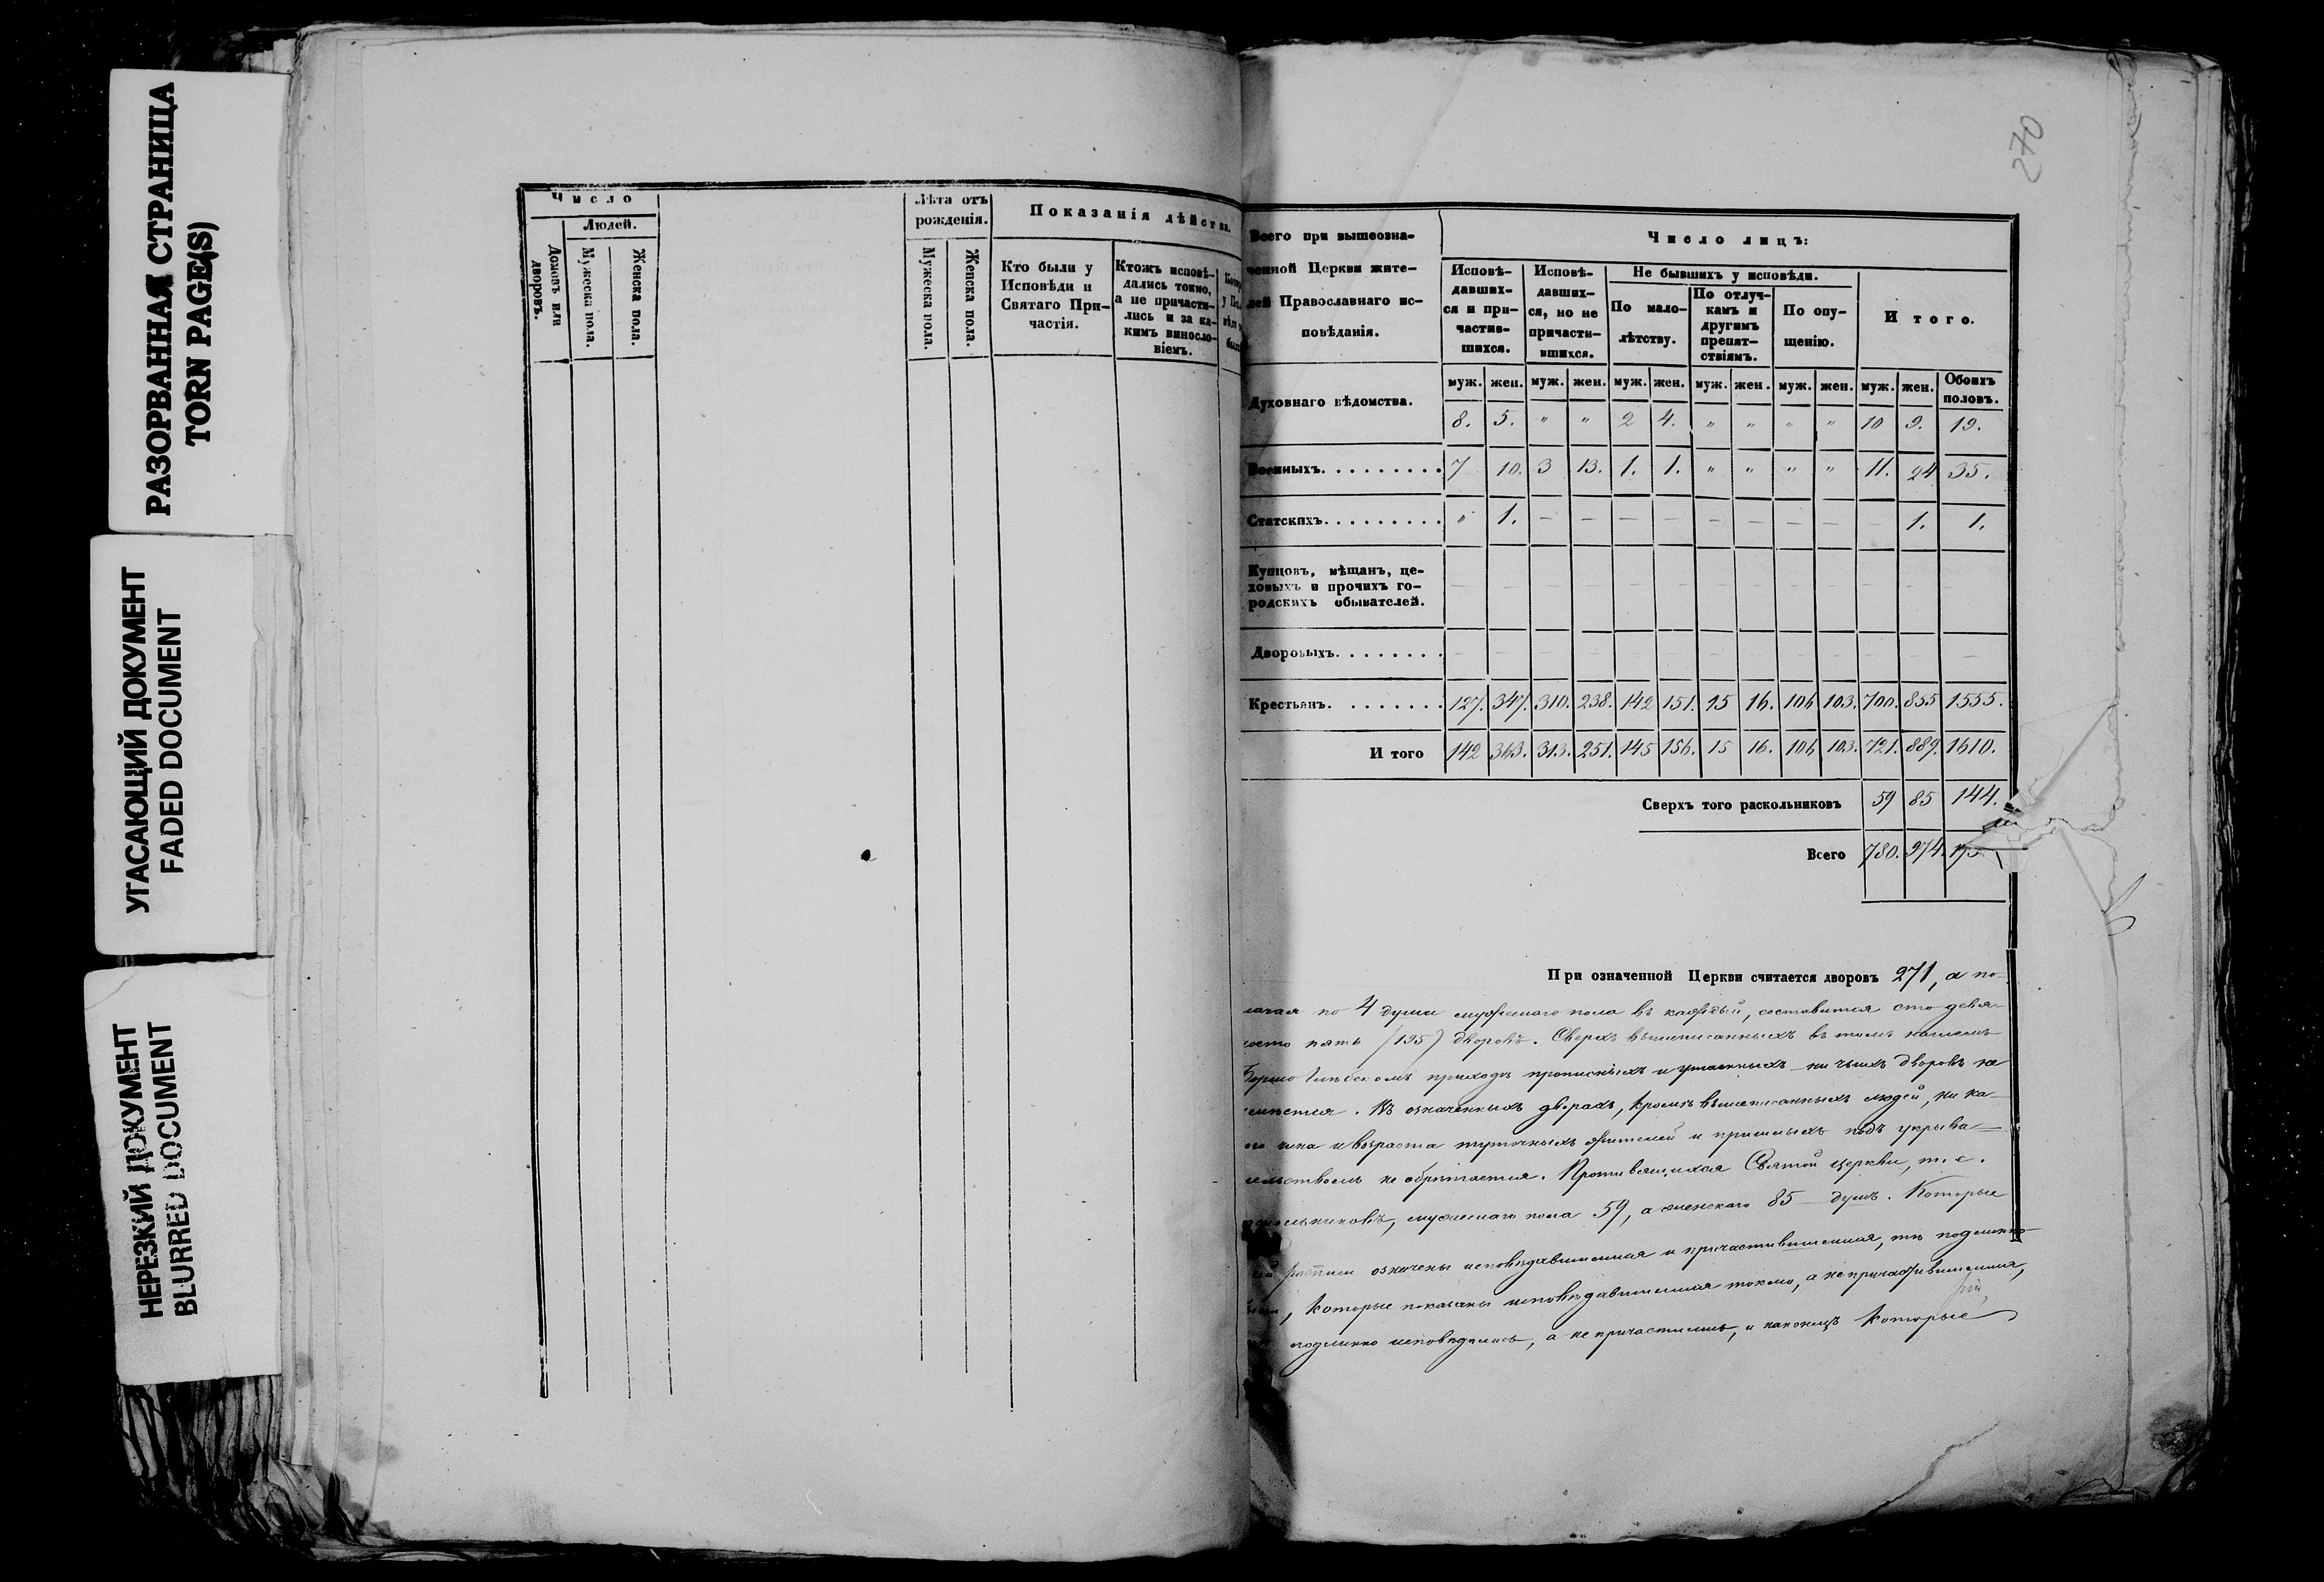 РАЗОРВАННАЯ СТРАНИЦА
TORN PAGE(S)
УГАСАЮЩИЙ ДОКУМЕНТ
FADED DOCUMENT
НЕРЕЗКИЙ ДОКУМЕНТ
BLURRED DOCUMENT
Число
Людей.
Домовъ или дворовъ.
Мужеска пола.
Женска пола.
Лѣта отъ рожденія.
Мужеска пола.
Женска пола.
Показанія дѣйства.
Кто были у
Исповѣди и
Святаго При-
частія.
Ктожъ исповѣ-
дались токмо,
а не причасти-
лись и за ка-
кимъ винosло-
віемъ.
270
Всего при вышеозна-
ченной Церкви жите-
лей Православнаго ис-
повѣданія.
Число лицъ:
Исповѣ-
давших-
ся и при-
частив-
шихся.
Исповѣ-
давших-
ся, но не
причасти-
вшихся.
Не бывшихъ у исповѣди.
По мало-
лѣтству.
По отлуч-
камъ и
другимъ
препят-
ствіямъ.
По опу-
щенію.
Итого.
муж. жен. муж. жен. муж. жен. муж. жен. муж. жен. муж. жен. Обоихъ половъ.
Духовнаго вѣдомства. 8. 5. " " 2 4. " " " " 10 9. 19.
Военныхъ. 7 10. 3 13. 1. 1. " " " " 11. 24 35.
Статскихъ. " 1. — — — — — — — — — 1. 1.
Купцовъ, мѣщанъ, це-
ховыхъ и прочихъ го-
родскихъ обывателей. — — — — — — — — — — — — —
Дворовыхъ. — — — — — — — — — — — — —
Крестьянъ. 127. 347. 310. 238. 142 151. 15 16. 106 103. 700. 855 1555.
И того 142 363. 313. 251. 145 156. 15 16. 106 103. 721. 889. 1610.
Сверхъ того раскольниковъ 59 85 144.
Всего 780. 974.
При означенной Церкви считается дворовъ 271, а по-
лагая по 4 души мужескаго пола въ каждый, составится сто девя-
носто пять (195) дворовъ. Сверхъ вышеписанныхъ въ томъ нашемъ
приходѣ прописныхъ и утаенныхъ ни чьихъ дворовъ не
имѣется. Въ означенныхъ дворахъ, кромѣ вышеписанныхъ людей, ни ка-
чина и возраста тутошныхъ жителей и пришлыхъ подъ укрыва-
тельствомъ не обрѣтается. Противящихся Святой церкви, т. е.
раскольниковъ, мужескаго пола 59, а женскаго 85 душъ. Которые
росписи означены исповѣдавшимися и причастившимися, тѣ подлинно
были, которые показаны исповѣдавшимися токмо, а непричастившимися,
подлинно исповѣдались, а не причастились, и наконецъ которые